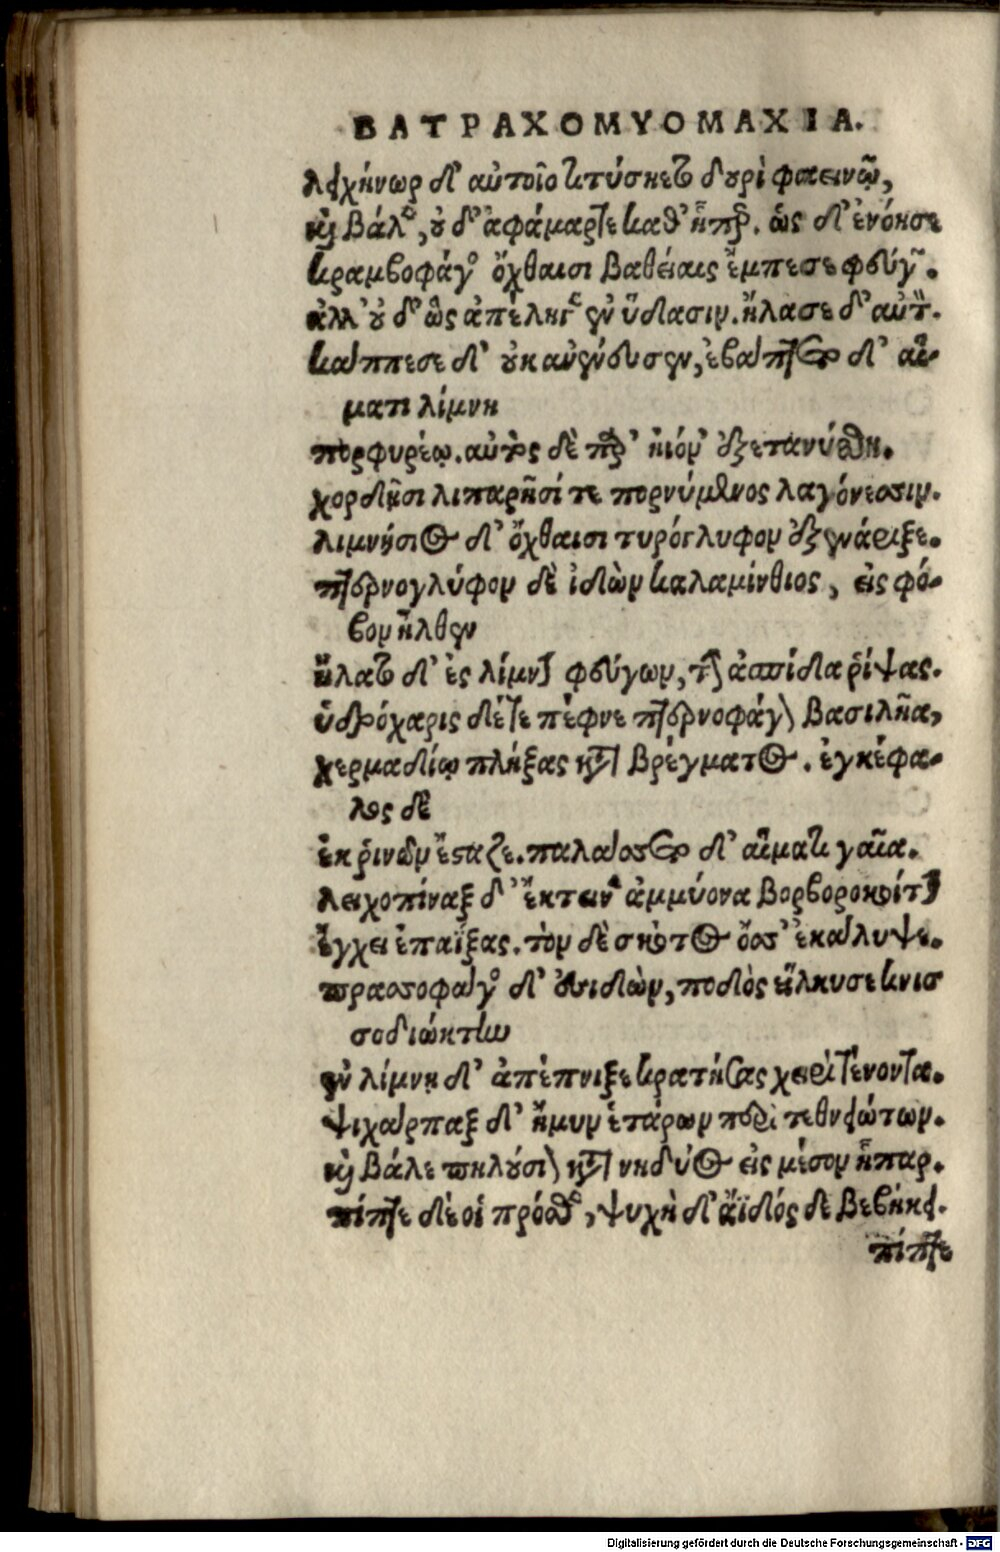 ΒΑΤΡΑΧΟΜΥΟΜΑΧΙΑ.
λειχήνωρ δ' αὐτοῖο τιτύσκετο δουρὶ φαεινῷ,
καὶ βάλεν, οὐδ' ἀφάμαρτε καθ' ἧπαρ. ὡς δ' ἐνόησε
κραμβοφάγος ὄχθαισι βαθείαις ἔμπεσε φεύγων.
ἀλλ' οὐδ' ὣς ἀπέληγεν ἐν ὕδασιν. ἤλασε δ' αὐτὸν.
κάππεσε δ' οὐκ ἀνένευσεν, ἐβάπτετο δ' αἵ-
ματι λίμνη
πορφυρέῳ. αὐτὸς δὲ παρ' ἠϊόν' ἐξετανύσθη.
χορδῇσι λιπαρῇσί τε πορνύμενος λαγόνεσσιν.
λιμνήσιος δ' ὄχθαισι τυρόγλυφον ἐξενάριξε.
πτερνογλύφον δὲ ἰδὼν καλαμίνθιος, εἰς φό-
βον ἦλθεν
ἥλατο δ' ἐς λίμνην φεύγων, τὴν ἀσπίδα ῥίψας.
ὑδρόχαρις δέ τε πέφνε πτερνοφάγον βασιλῆα,
χερμαδίῳ πλήξας κατὰ βρέγματος. ἐγκέφα-
λος δὲ
ἐκ ῥινῶν ἔσταζε. παλάσσετο δ' αἵματι γαῖα.
λειχοπίναξ δ' ἔκτεινεν ἀμμύονα βορβοροκοίτην
ἔγχει ἐπαΐξας. τὸν δὲ σκότος ὄσσ' ἐκάλυψε.
πρασσοφάγος δ' ἐσιδὼν, ποδὸς εἵλκυσε κνισ
σοδιώκτην
ἐν λίμνῃ δ' ἀπέπνιξε κρατήσας χειρὶ τένοντα.
ψιχάρπαξ δ' ἤμυν ἑτάρων περὶ τεθνειώτων.
καὶ βάλε πηλούσιον κατὰ νηδύος εἰς μέσον ἧπαρ.
πίπτε δέ οἱ πρόσθεν, ψυχὴ δ' ἄϊδός δε βεβήκει.
πίπτε
Digitalisierung gefördert durch die Deutsche Forschungsgemeinschaft - DFG